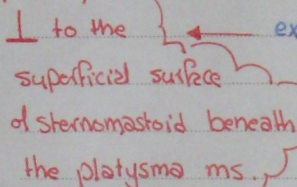 ⊥ to the ex
superficial surface
of sternomastoid beneath
the platysma ms.